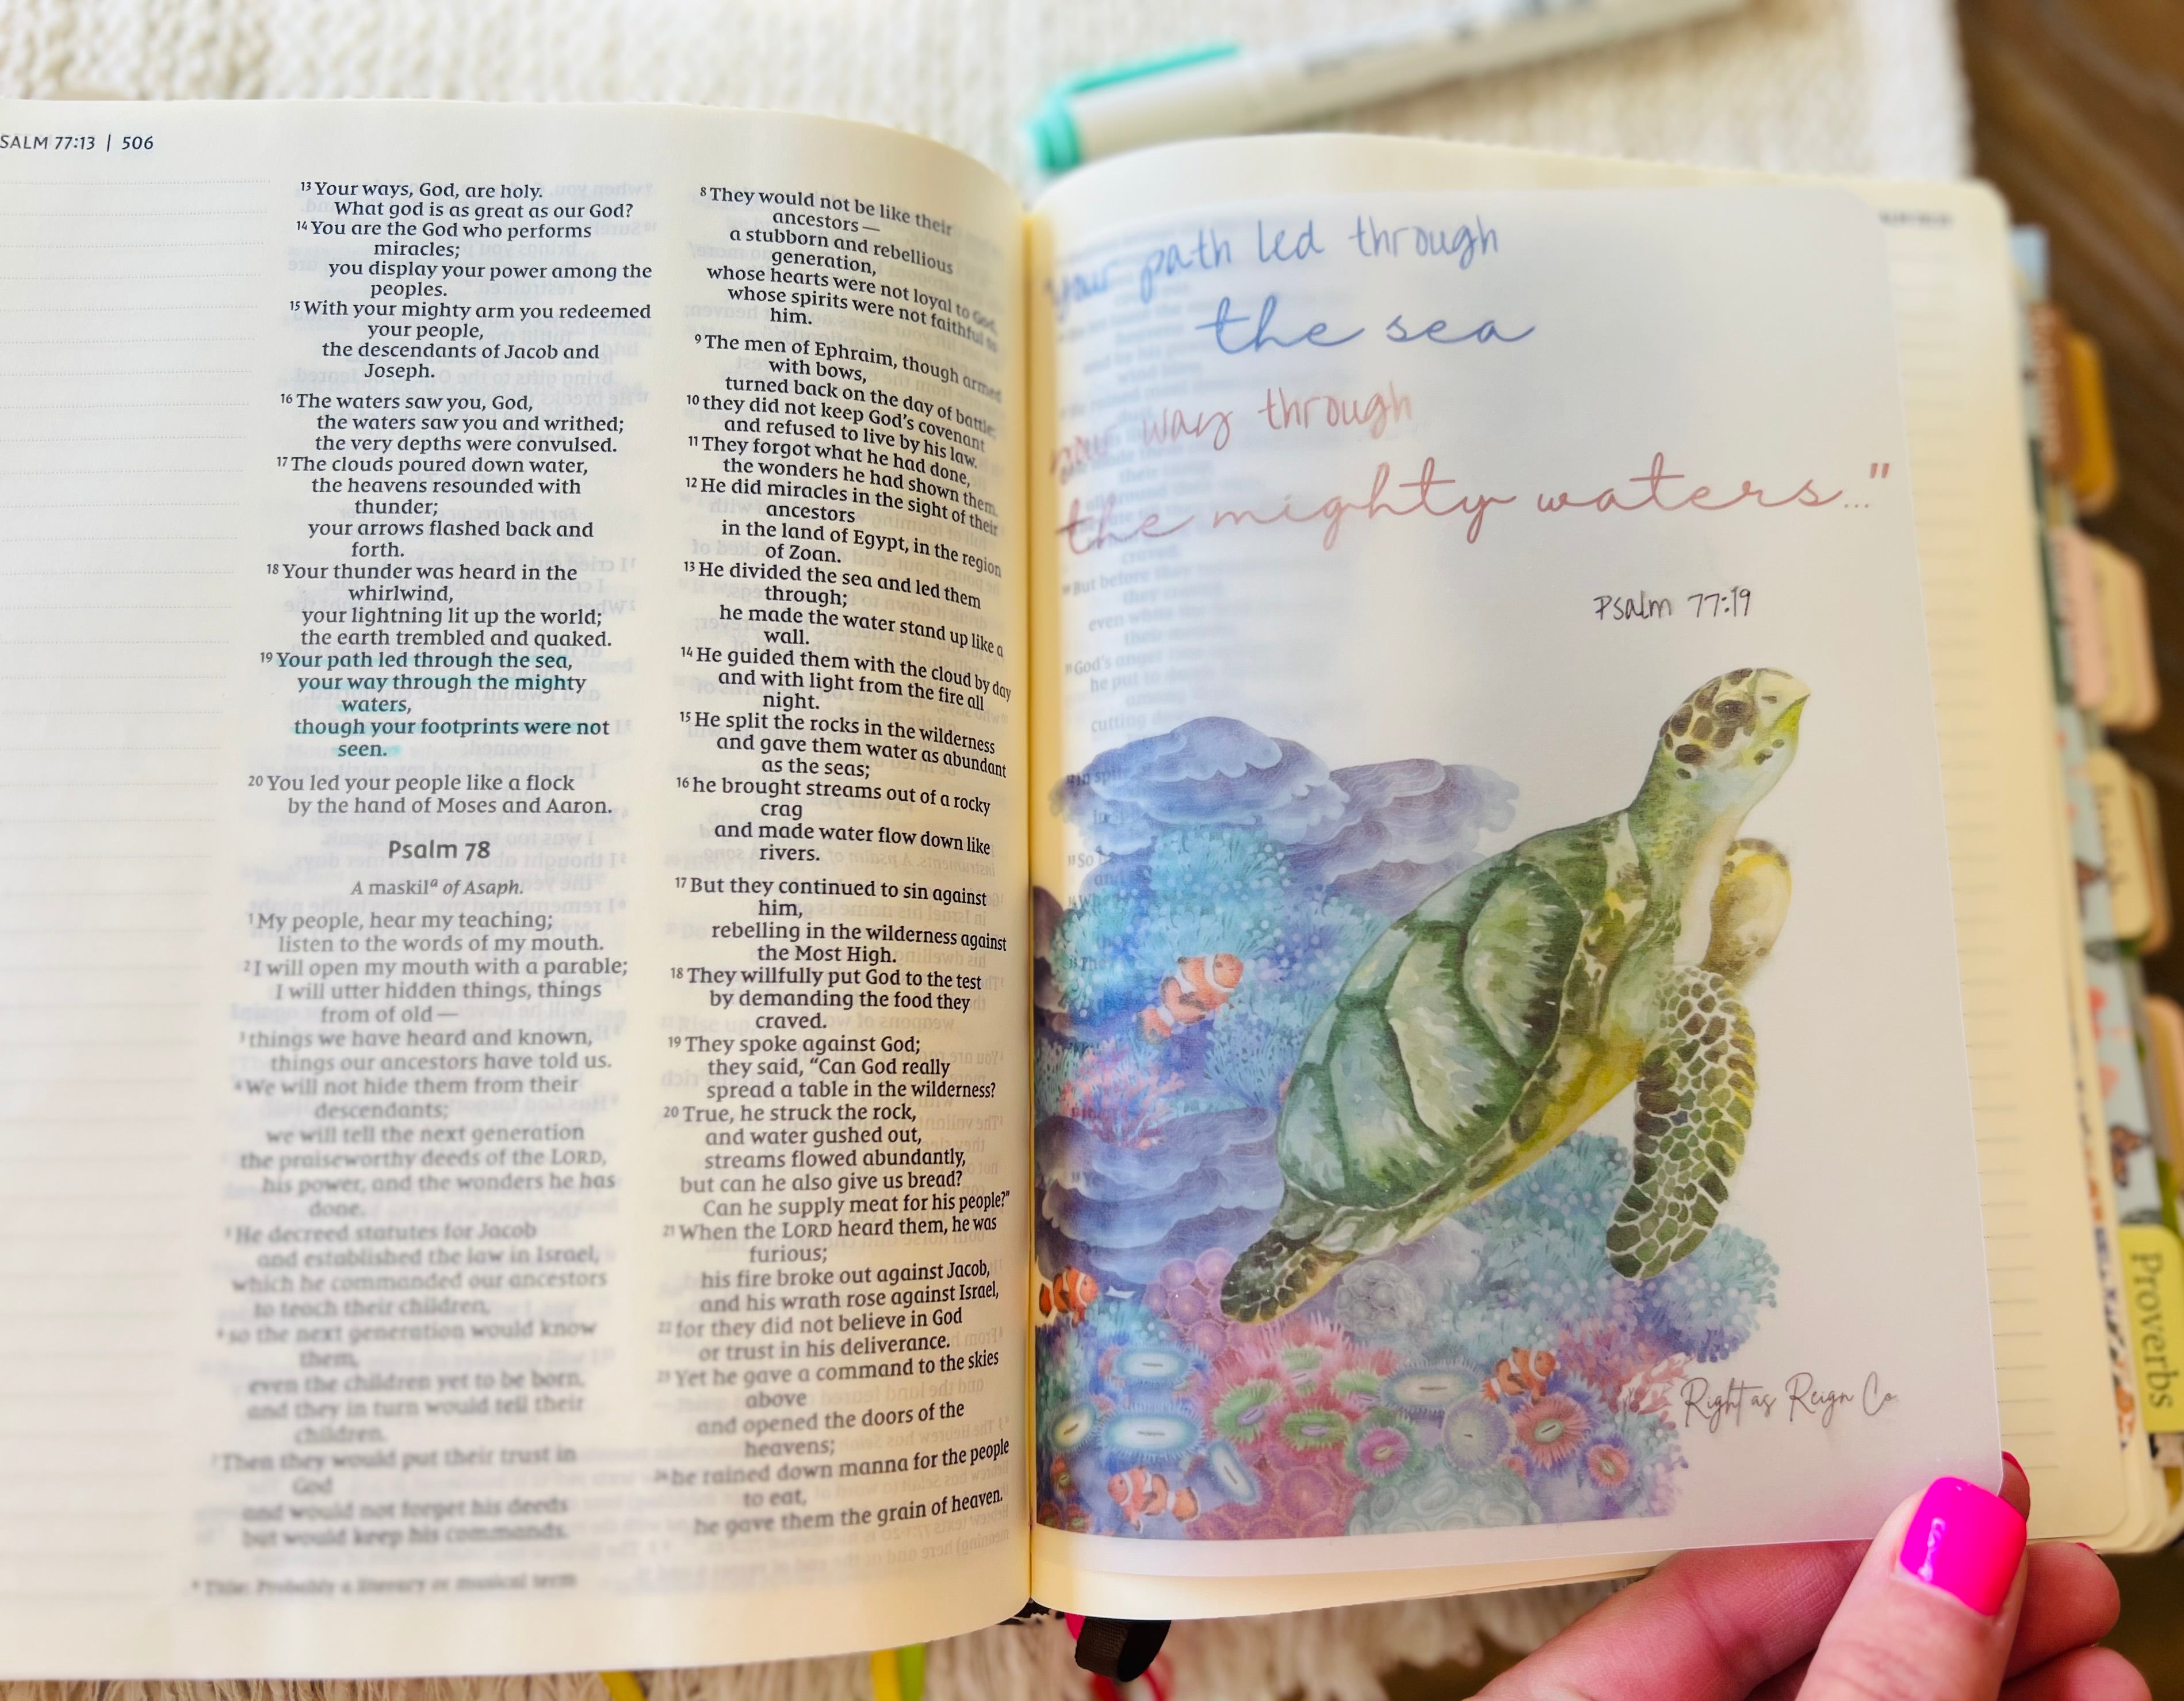 SALM 77:13 | 506
13 Your ways, God, are holy.
What god is as great as our God?
14 You are the God who performs
miracles;
you display your power among the
peoples.
15 With your mighty arm you redeemed
your people,
the descendants of Jacob and
Joseph.
16 The waters saw you, God,
the waters saw you and writhed;
the very depths were convulsed.
17 The clouds poured down water,
the heavens resounded with
thunder;
your arrows flashed back and
forth.
18 Your thunder was heard in the
whirlwind,
your lightning lit up the world;
the earth trembled and quaked.
19 Your path led through the sea,
your way through the mighty
waters,
though your footprints were not
seen.
20 You led your people like a flock
by the hand of Moses and Aaron.
Psalm 78
A maskil a of Asaph.
1 My people, hear my teaching;
listen to the words of my mouth.
2 I will open my mouth with a parable;
I will utter hidden things, things
from of old—
3 things we have heard and known,
things our ancestors have told us.
4 We will not hide them from their
descendants;
we will tell the next generation
the praiseworthy deeds of the LORD,
his power, and the wonders he has
done.
5 He decreed statutes for Jacob
and established the law in Israel,
which he commanded our ancestors
to teach their children,
6 so the next generation would know
them,
even the children yet to be born,
and they in turn would tell their
children.
7 Then they would put their trust in
God
and would not forget his deeds
but would keep his commands.
a Title: Probably a literary or musical term
8 They would not be like their
ancestors—
a stubborn and rebellious
generation,
whose hearts were not loyal to God,
whose spirits were not faithful to
him.
9 The men of Ephraim, though armed
with bows,
turned back on the day of battle;
10 they did not keep God's covenant
and refused to live by his law.
11 They forgot what he had done,
the wonders he had shown them.
12 He did miracles in the sight of their
ancestors
in the land of Egypt, in the region
of Zoan.
13 He divided the sea and led them
through;
he made the water stand up like a
wall.
14 He guided them with the cloud by day
and with light from the fire all
night.
15 He split the rocks in the wilderness
and gave them water as abundant
as the seas;
16 he brought streams out of a rocky
crag
and made water flow down like
rivers.
17 But they continued to sin against
him,
rebelling in the wilderness against
the Most High.
18 They willfully put God to the test
by demanding the food they
craved.
19 They spoke against God;
they said, "Can God really
spread a table in the wilderness?
20 True, he struck the rock,
and water gushed out,
streams flowed abundantly,
but can he also give us bread?
Can he supply meat for his people?"
21 When the LORD heard them, he was
furious;
his fire broke out against Jacob,
and his wrath rose against Israel,
22 for they did not believe in God
or trust in his deliverance.
23 Yet he gave a command to the skies
above
and opened the doors of the
heavens;
24 he rained down manna for the people
to eat,
he gave them the grain of heaven.
"your path led through
the sea
your way through
the mighty waters..."
Psalm 77:19
Right as Reign Co.
Proverbs